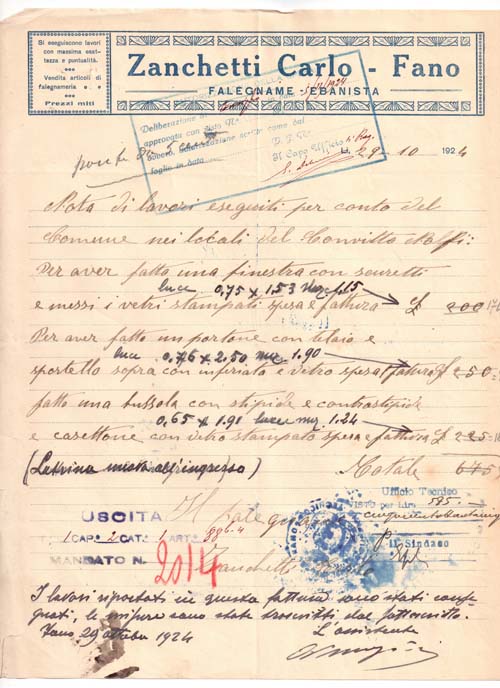 Si eseguiscono lavori
con massima esat-
tezza e puntualità.
Vendita articoli di
falegnameria
Prezzi miti
Zanchetti Carlo - Fano
FALEGNAME EBANISTA
Deliberazione
approvata con visto N.
ovvero, autorizzazione come dal
foglio in data
Il Capo Ufficio
li, 29-10 1924
Nota di lavori eseguiti per conto del
Comune nei locali del Convitto Nolfi:
Per aver fatto una finestra con scuretti
luce 0,75 x 1,53 mq. 1.15
e messi i vetri stampati spesa e fattura £ 200
Per aver fatto un portone con telaio e
luce 0,76 x 2.50 mq. 1.90
sportello sopra con inferiata e vetro spesa e fattura £ 250
fatto una bussola con stipide e contrastipide
0,65 x 1.91 luce mq. 1.24
e casettone con vetro stampato spesa e fattura £ 225
(Latrina nuova all'ingresso)
Totale 675
Ufficio Tecnico
Visto per Lire 595
USCITA
CAP. 2 CAT. 1 ART.
MANDATO N.
2014
Il Sindaco
Zanchetti Carlo
I lavori riportati in questa fattura sono stati conse-
gnati, le misure sono state trascritte dal sottoscritto.
Fano 29 ottobre 1924
L'assistente